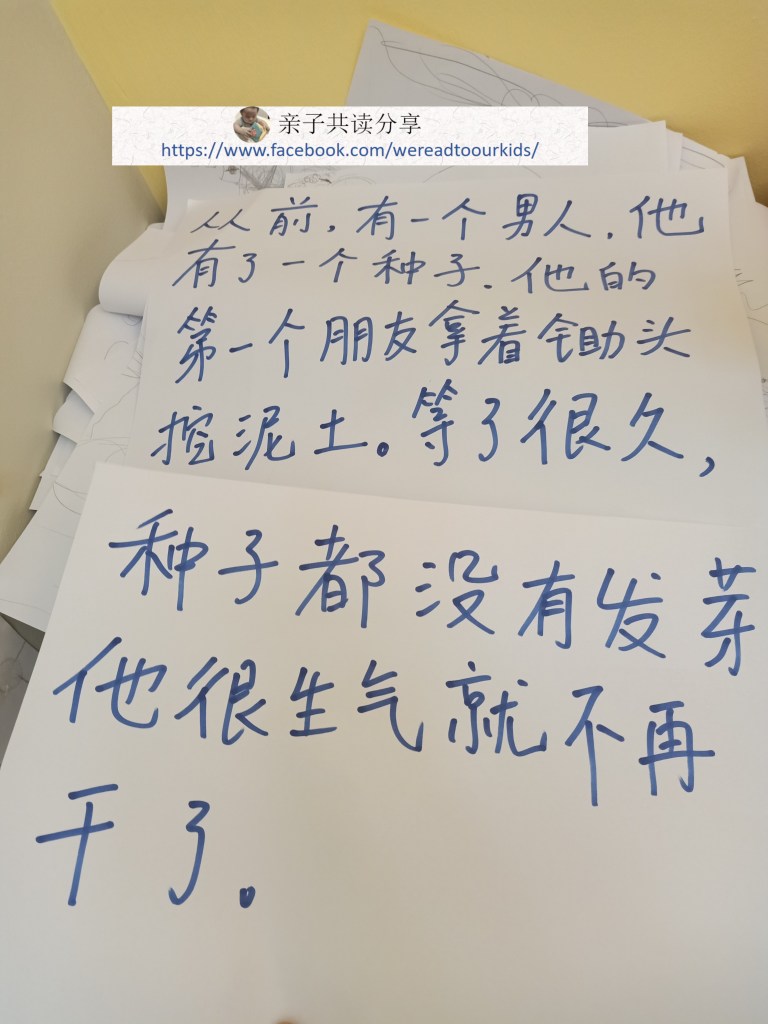 亲子共读分享
https://www.facebook.com/wereadtoourkids/
从前，有一个男人，他
有了一个种子．他的
第一个朋友拿着锄头
挖泥土。等了很久，
种子都没有发芽
他很生气就不再
干了。